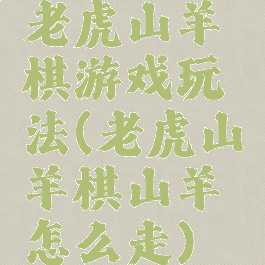 老虎山羊
棋游戏玩
法(老虎山
羊棋山羊
怎么走)